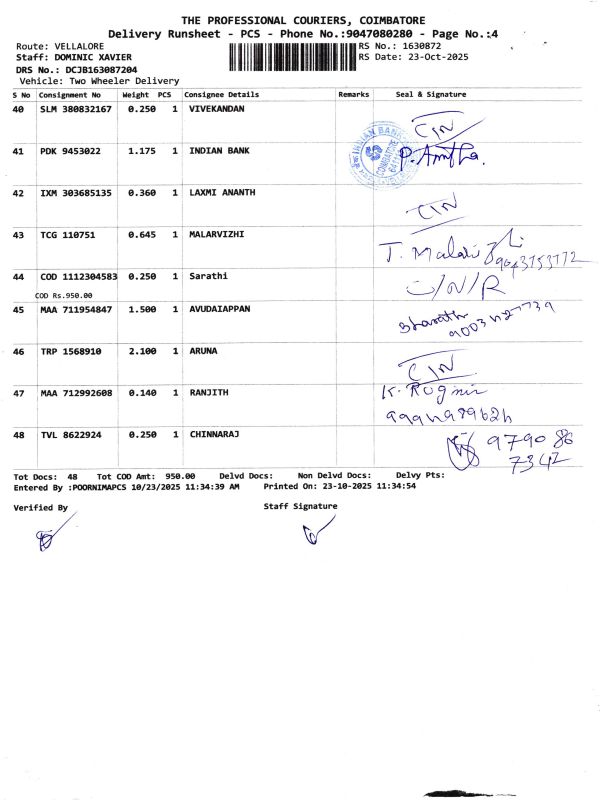 THE PROFESSIONAL COURIERS, COIMBATORE
Delivery Runsheet - PCS - Phone No.:9047080280 - Page No.:4
Route: VELLALORE RS No.: 1630872
Staff: DOMINIC XAVIER RS Date: 23-Oct-2025
DRS No.: DCJB163087204
Vehicle: Two Wheeler Delivery
S No Consignment No Weight PCS Consignee Details Remarks Seal & Signature
40 SLM 380832167 0.250 1 VIVEKANDAN
CIN
41 PDK 9453022 1.175 1 INDIAN BANK
INDIAN BANK
COIMBATORE
P. Amtha.
42 IXM 303685135 0.360 1 LAXMI ANANTH
CIN
43 TCG 110751 0.645 1 MALARVIZHI
T. Malar
44 COD 1112304583 0.250 1 Sarathi
C/N/R
COD Rs.950.00
45 MAA 711954847 1.500 1 AVUDAIAPPAN
Bharath
46 TRP 1568910 2.100 1 ARUNA
CIN
47 MAA 712992608 0.140 1 RANJITH
K. Rugmir
48 TVL 8622924 0.250 1 CHINNARAJ
97908 86
7342
Tot Docs: 48 Tot COD Amt: 950.00 Delvd Docs: Non Delvd Docs: Delvy Pts:
Entered By :POORNIMAPCS 10/23/2025 11:34:39 AM Printed On: 23-10-2025 11:34:54
Verified By Staff Signature